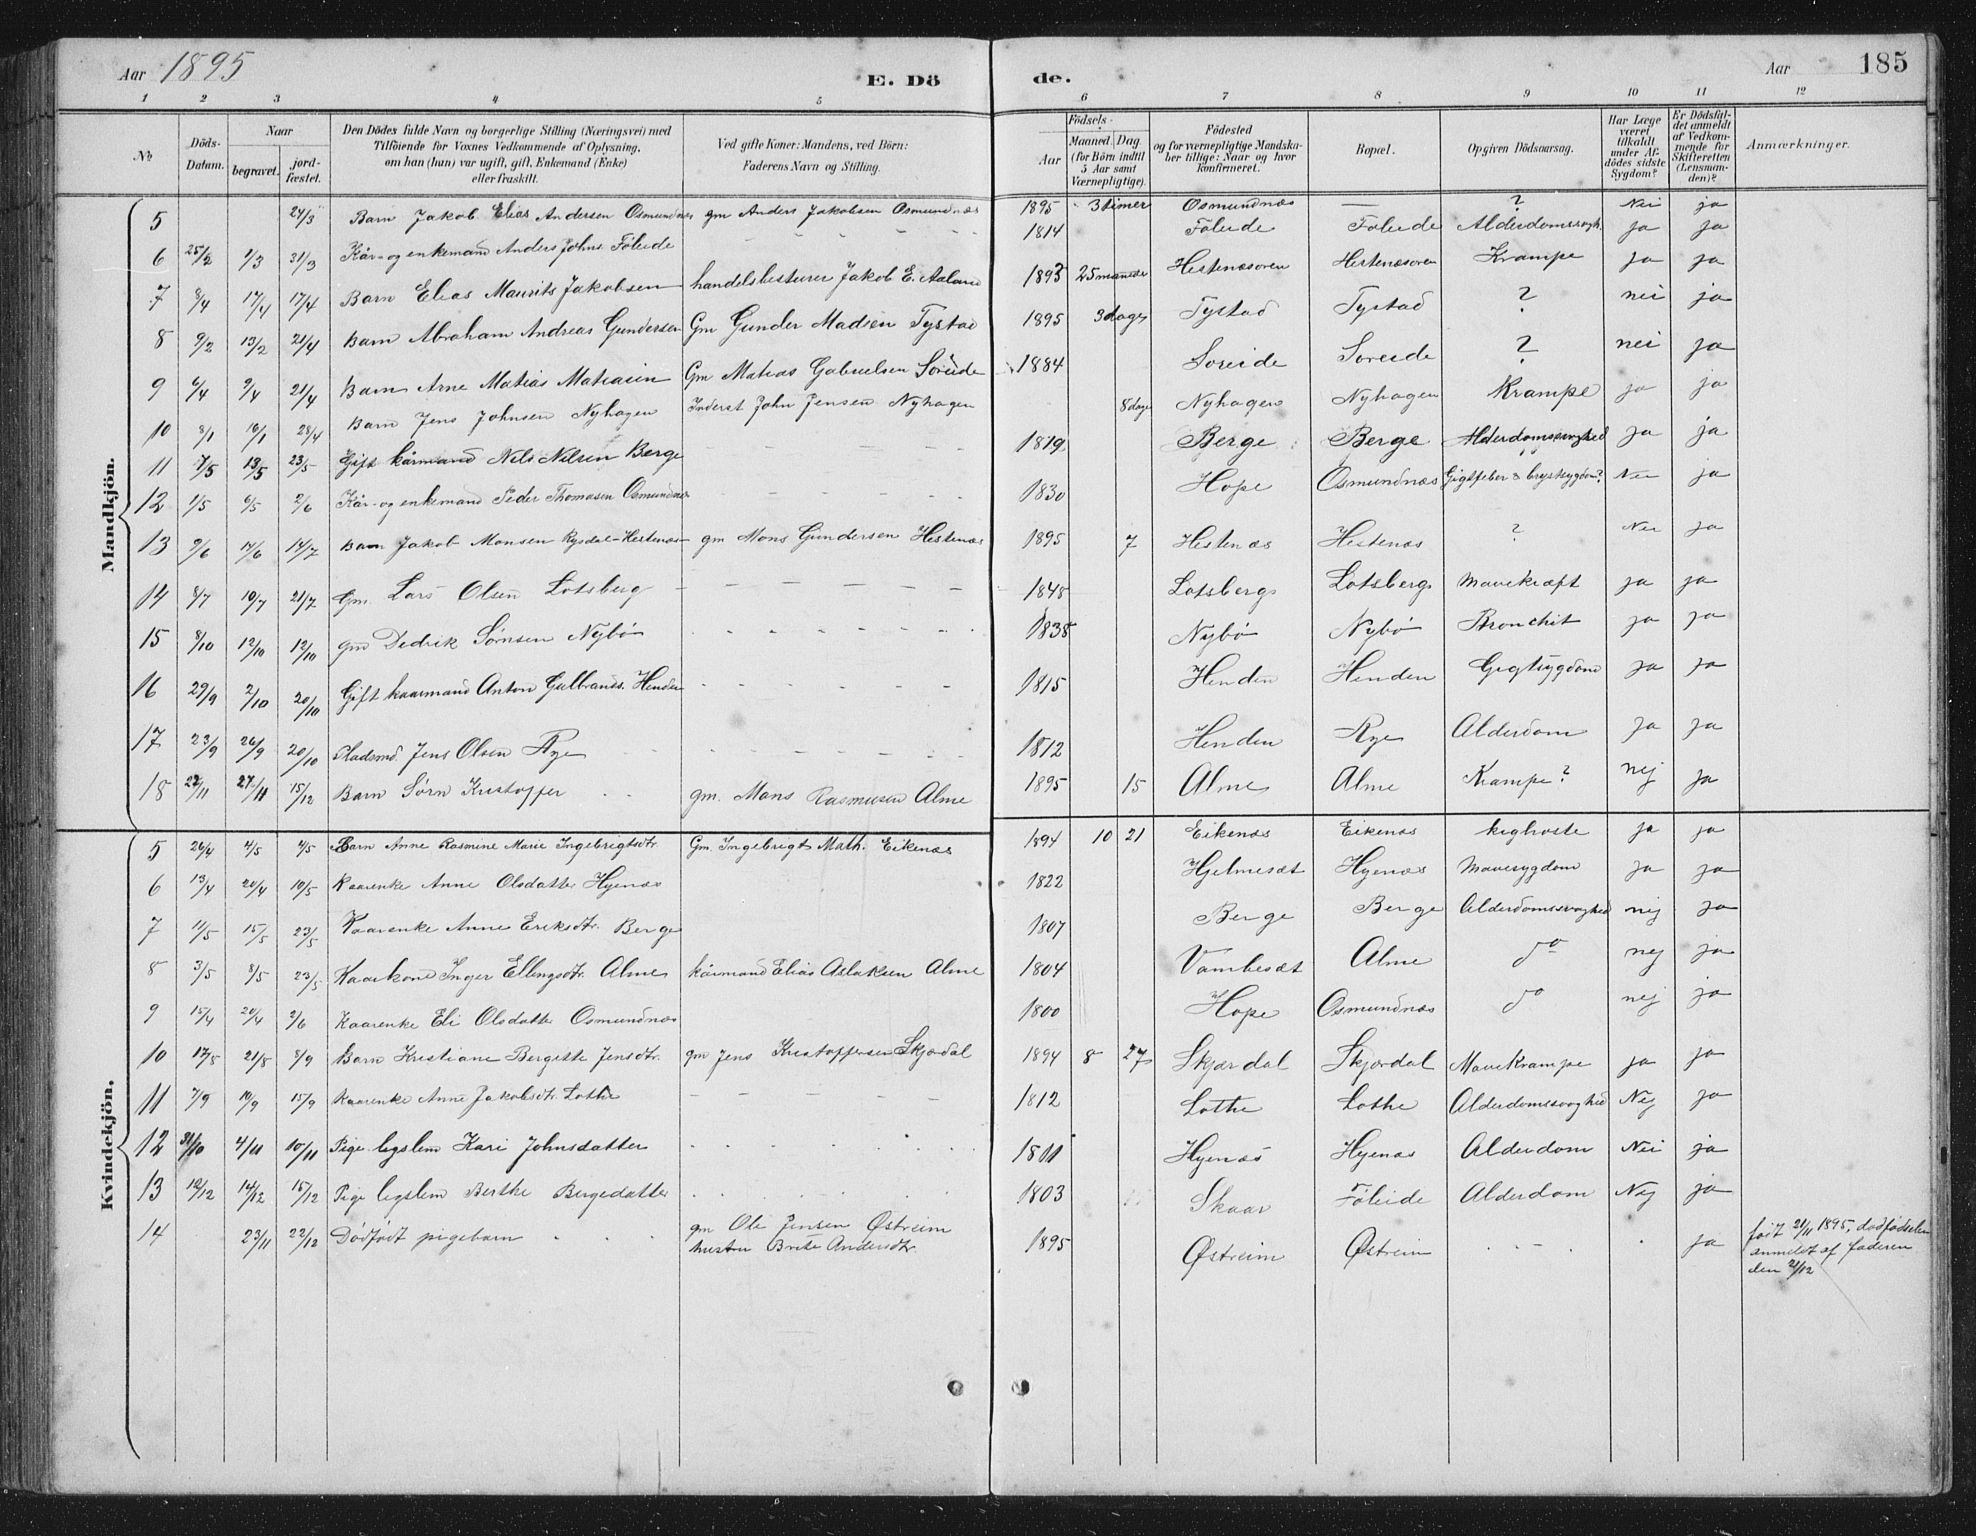 Aar 1895 E. Dö de. Aar 185
1 2 3 4 5 6 7 8 9 10 11 12
No Döds-Datum. Naar begravet. jord-fæstet. Den Dödes fulde Navn og borgerlige Stilling (Næringsvei) med Tilföiende for Voxnes Vedkommende af Oplysning, om han (hun) var ugift, gift, Enkemand (Enke) eller fraskilt. Ved gifte Koner: Mandens, ved Börn: Faderens Navn og Stilling. Födsels- Aar Maaned. Dag (for Börn indtil 5 Aar samt Værnepligtige). Födested og for værnepligtige Mandskaber tillige: Naar og hvor konfirmeret. Bopæl. Opgiven Dödsaarsag. Har Læge været tilkaldt under Afdödes sidste Sygdom? Er Dödsfaldet anmeldt af Vedkommende for Skifteretten (Lensmanden)? Anmærkninger.
Mandkjön.
5 24/3 Barn Jakob Elias Andersen Osmundnæs gm Anders Jakobsen Osmundnæs 1895 3 timer Osmundnæs — ? Nei ja
6 25/2 1/3 31/3 Kår- og enkemand Anders Johns. Föleide 1814 Föleide Föleide Alderdomssvagh. ja ja
7 8/4 17/4 17/4 Barn Elias Maurits Jakobsen handelsbestyrer Jakob E. Aaland 1893 25 maneder Hestenæsøren Hestenæsøren Krampe ja ja
8 9/2 13/2 21/4 Barn Abraham Andreas Gundersen Gm Gunder Madsen Tystad 1895 3 dage Tystad Tystad ? nei ja
9 6/4 9/4 21/4 Barn Arne Matias Matiasen Gm Matias Gabrielsen Søreide 1884 Søreide Søreide ? nei ja
10 8/1 16/1 28/4 Barn Jens Johnsen Nyhagen Inderst John Jensen Nyhagen 8 dage Nyhagen Nyhagen Krampe ja ja
11 7/5 13/5 23/5 Gift kårmand Nils Nilsen Berge 1819 Berge Berge Alderdomssvaghed ja ja
12 1/5 6/5 2/6 Kår- og enkemand Peder Thomasen Osmundnæs 1830 Hope Osmundnæs Gigtfeber & brystsygdom? Nei ja
13 9/6 17/6 14/7 Barn Jakob Monsen Rysdal-Hestenæs gm Mons Gundersen Hestenæs 1895 7 Hestenæs Hestenæs ? Nei ja
14 8/7 10/7 21/7 Gm. Lars Olsen Lotsberg 1848 Lotsberg Lotsberg Mavekræft ja ja
15 8/10 12/10 12/10 gm Dedrik Sørnsen Nybø 1838 Nybø Nybø Bronchit ja ja
16 29/9 2/10 20/10 Gift kaarmand Anton Gulbrands. Henden 1815 Henden Henden Gigtsygdom ja ja
17 23/9 26/9 20/10 Pladsmd. Jens Olsen Rye 1812 Henden Rye Alderdom ja ja
18 22/11 27/11 15/12 Barn Sørn Kristoffer gm. Mons Rasmusen Alme 1895 15 Alme Alme Krampe? nej ja
Kvindekjön.
5 26/4 4/5 4/5 Barn Anne Rasmine Marie Ingebrigtsdtr. Gm. Ingebrigt Math. Eikenæs 1894 10 21 Eikenæs Eikenæs kighoste ja ja
6 13/4 20/4 10/5 Kaarenke Anne Olsdatter Hyenæs 1822 Hjelmesæt Hyenæs Mavesygdom ja ja
7 11/5 15/5 23/5 Kaarenke Anne Eriksdtr. Berge 1807 Berge Berge Alderdomssvaghed nej ja
8 3/5 8/5 23/5 Kaarkone Inger Ellingsdtr. Alme kårmand Elias Aslaksen Alme 1804 Vambesæt Alme do nej ja
9 15/4 20/4 2/6 Kaarenke Eli Olsdatter Osmundnæs 1800 Hope Osmundnæs do nej ja
10 17/8 21/8 8/9 Barn Kristiane Bergitte Jensdtr. gm Jens Kristoffersen Skjærdal 1894 8 27 Skjærdal Skjærdal Mavekrampe ja ja
11 7/9 10/9 15/9 Kaarenke Anne Jakobsdtr. Lothe 1812 Lothe Lothe Alderdomssvaghed Nej ja
12 31/10 4/11 10/11 Pige legslem Kari Johnsdatter 1811 Hyenæs Hyenæs Alderdom Nei ja
13 10/12 14/12 15/12 Pige legslem Berthe Bergedatter 1803 Skaar Föleide Alderdom Nej ja
14 23/11 22/12 Dødfødt pigebarn gm Ole Jensen Østreim hustru Brite Andersdtr. 1895 Østreim Østreim ja født 21/11 1895, dødfødselen anmeldt af faderen den 21/12